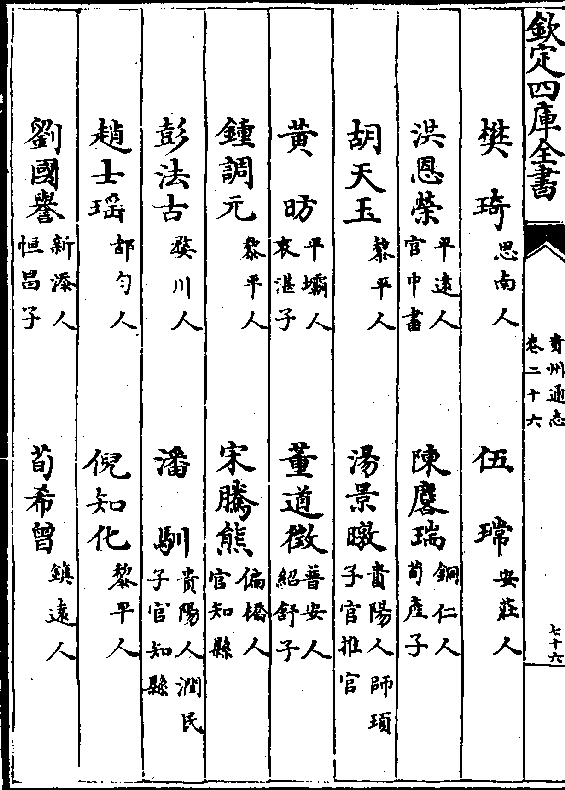 欽定四庫全書
貴州通志
卷二十六
七十六
樊琦 思南人 伍瑺 安莊人
洪恩榮 平遠人官中書 陳麐瑞 銅仁人荀產子
胡天玉 黎平人 湯景暾 貴陽人師頊子官推官
黃昉 平壩人哀湛子 董道徵 普安人紹舒子
鍾調元 黎平人 宋騰熊 偏橋人官知縣
彭法古 婺川人 潘馴 貴陽人潤民子官知縣
趙士瑶 都勻人 倪知化 黎平人
劉國譽 新添人恒昌子 荀希曾 鎮遠人